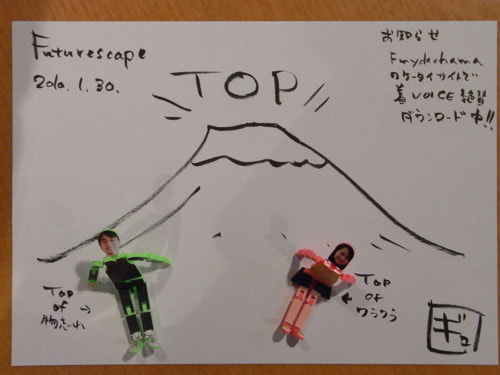 Futurescape
2010.1.30.
お知らせ
Fmyokohama
のケータイサイトで
着VOICE 絶賛
ダウンロード中!!
TOP
TOP
of
物忘れ
TOP
of
ギュ